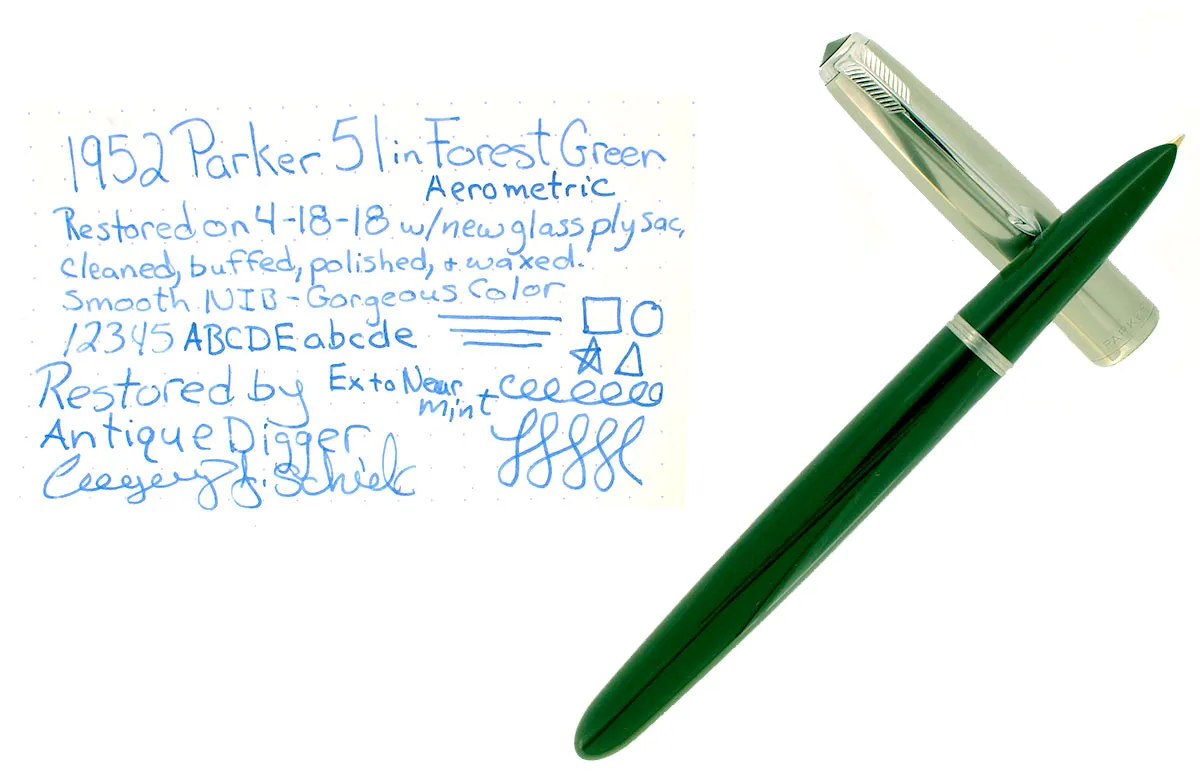 1952 Parker 51 in Forest Green
Aerometric
Restored on 4-18-18 w/new glass ply sac,
cleaned, buffed, polished, + waxed.
Smooth NIB - Gorgeous Color
12345 ABCDE abcde
Restored by
Ex to Near
mint
Antique Digger
J. Schiek
PARKER